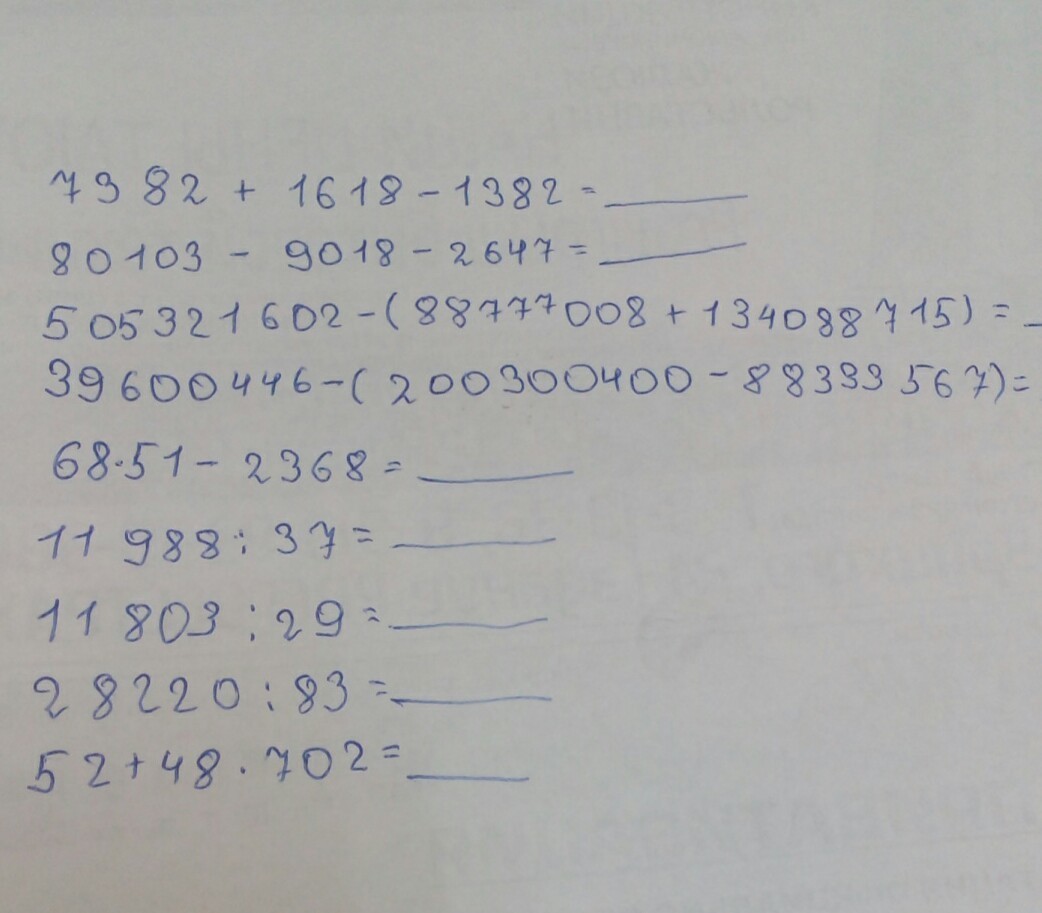 7382 + 1618 - 1382 = ____
80103 - 9018 - 2647 = ____
505321602 - (88777008 + 134088715) = _
39600446 - (200300400 - 88399567) =
68·51 - 2368 = ____
11 988 : 37 = ____
11 803 : 29 = ____
28220 : 83 = ____
52 + 48 · 702 = ____